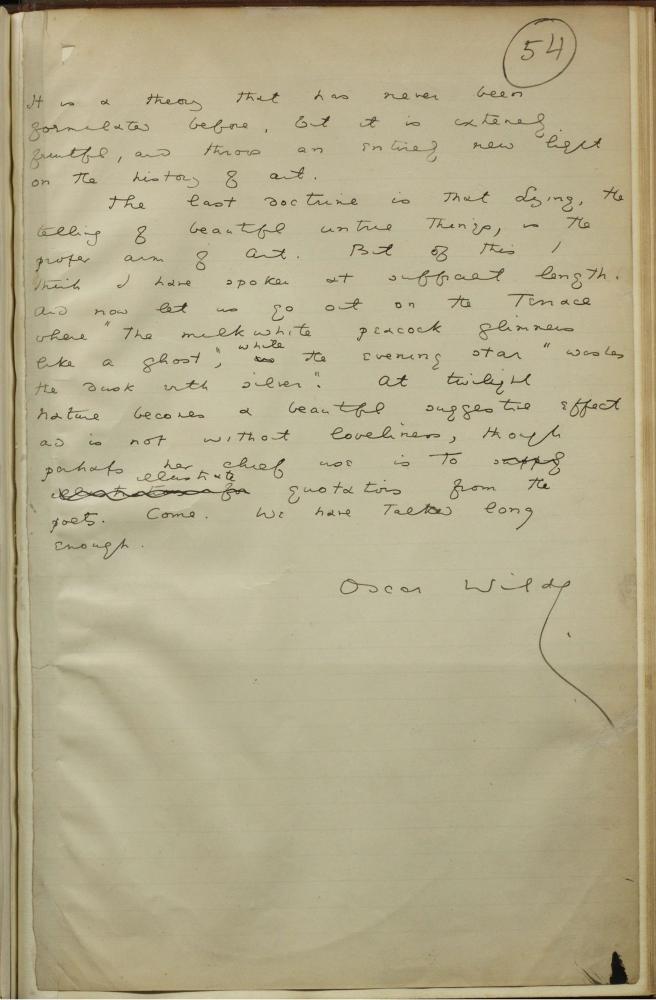 54
It is a theory that has never been
formulated before, but it is extremely
fruitful, and throws an entirely new light
on the history of art.
The last doctrine is that Lying, the
telling of beautiful untrue things, is the
proper aim of Art. But of this I
think I have spoken at sufficient length.
And now let us go out on the Terrace
where "the milk white peacock glimmers
like a ghost", while the evening star "washes
the dusk with silver". At twilight
nature becomes a beautiful suggestive effect
and is not without loveliness, though
perhaps her chief use is to supply
illustrate
illustrations for quotations from the
poets. Come. We have talked long
enough.
Oscar Wilde